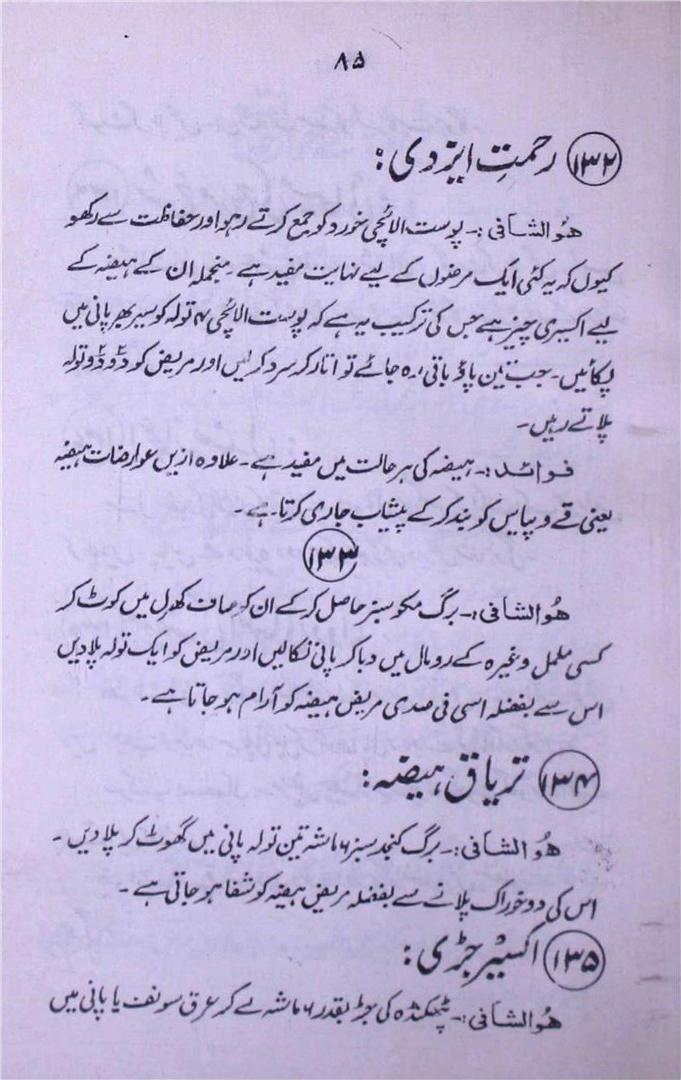 ۸۵
۱۳۲ رحمتِ ایزدی:
ھُوالشافی:۔ پوست الائچی خورد کو جمع کرتے رہو اور حفاظت سے رکھو
کیوں کہ یہ کئی ایک مرضوں کے لیے نہایت مفید ہے۔ منجملہ ان کے ہیضہ کے
لیے اکسیری چیز ہے جس کی ترکیب یہ ہے کہ پوست الائچی ۴ تولہ کو سیر بھر پانی میں
پکائیں۔ جب تین پاؤ باقی رہ جائے تو اتار کر سرد کر لیں اور مریض کو دو دو تولہ
پلاتے رہیں۔
فوائد:۔ ہیضہ کی ہر حالت میں مفید ہے۔ علاوہ ازیں عوارضات ہیضہ
یعنی قے و پیاس کو بند کر کے پیشاب جاری کرتا ہے۔
۱۳۳
ھُوالشافی:۔ برگ مکو سبز حاصل کر کے ان کو صاف کھرل میں کوٹ کر
کسی ململ وغیرہ کے رومال میں دبا کر پانی نکالیں اور مریض کو ایک تولہ پلا دیں
اس سے بفضلہ اسی فی صدی مریض ہیضہ کو آرام ہو جاتا ہے۔
۱۳۴ تریاق ہیضہ:
ھُوالشافی:۔ برگ کنجد سبز ۶ ماشہ تین تولہ پانی میں گھوٹ کر پلا دیں۔
اس کی دو خوراک پلانے سے بفضلہ مریض ہیضہ کو شفا ہو جاتی ہے۔
۱۳۵ اکسیر جڑی:
ھُوالشافی:۔ پٹھکنڈہ کی جڑ بقدر ۶ ماشہ لے کر عرق سونف یا پانی میں